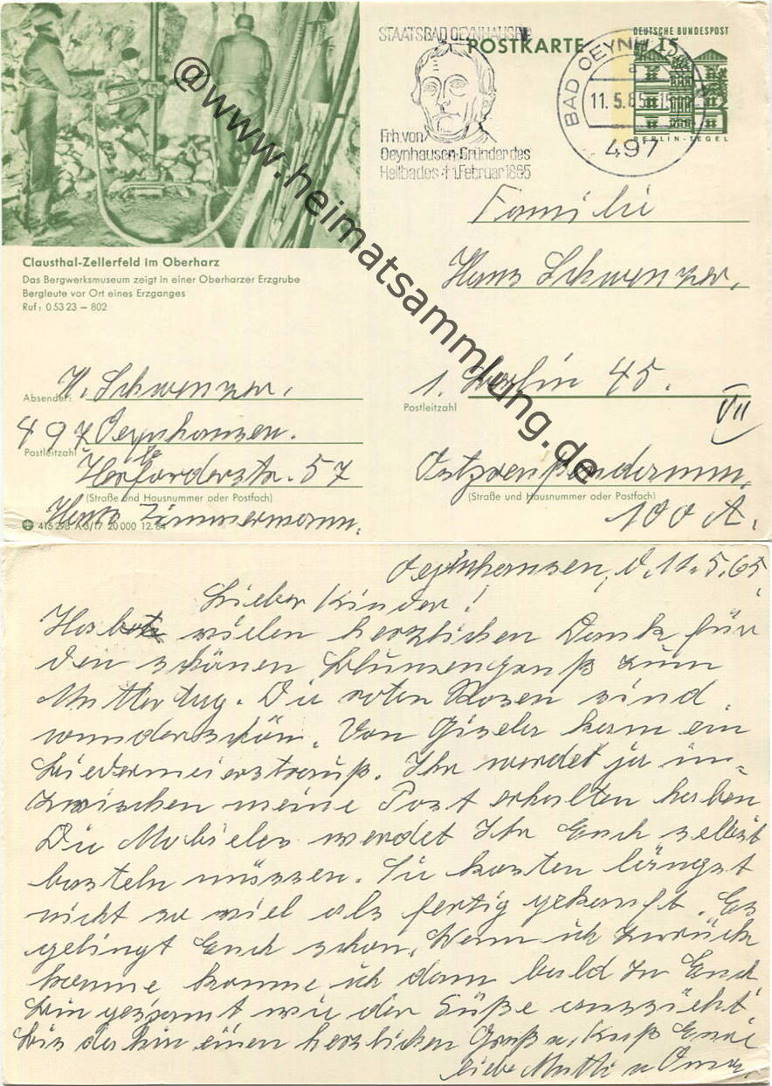 STAATSBAD OEYNHAUSEN
Frh. von
Oeynhausen·Gründer des
Heilbades † 1. Februar 1865
POSTKARTE
DEUTSCHE BUNDESPOST
15
BERLIN-TEGEL
BAD OEYNH
a
11.5.65
497
@www.heimatsammlung.de
Clausthal-Zellerfeld im Oberharz
Das Bergwerksmuseum zeigt in einer Oberharzer Erzgrube
Bergleute vor Ort eines Erzganges
Ruf: 0 53 23 – 802
Familie
Hans Schwenzer,
1. Berlin 45.
Postleitzahl
VII
Ostpreußendamm,
(Straße und Hausnummer oder Postfach)
100 A.
Absender: H. Schwenzer,
497 Oeynhausen.
Postleitzahl
Herforderstr. 57
(Straße und Hausnummer oder Postfach)
Haus Zimmermann.
20 000 12. 64
Oeynhausen, d. 11.5.65.
Lieber Kinder!
Habt vielen herzlichen Dank für
den schönen Blumengruß zum
Muttertag. Die roten Rosen sind
wunderschön. Von Gisela kam ein
Biedermeierstrauß. Ihr werdet ja in-
zwischen meine Post erhalten haben
Die Mobieles werdet Ihr Euch selbst
basteln müssen. Sie kosten längst
nicht so viel als fertig gekauft. Es
gelingt Euch schon. Wenn ich zurück
komme komme ich dann bald zu Euch
bin gespannt wie der Süße aussieht
Bis dahin einen herzlichen Gruß u. Kuß Eure
liebe Mutti u Oma.